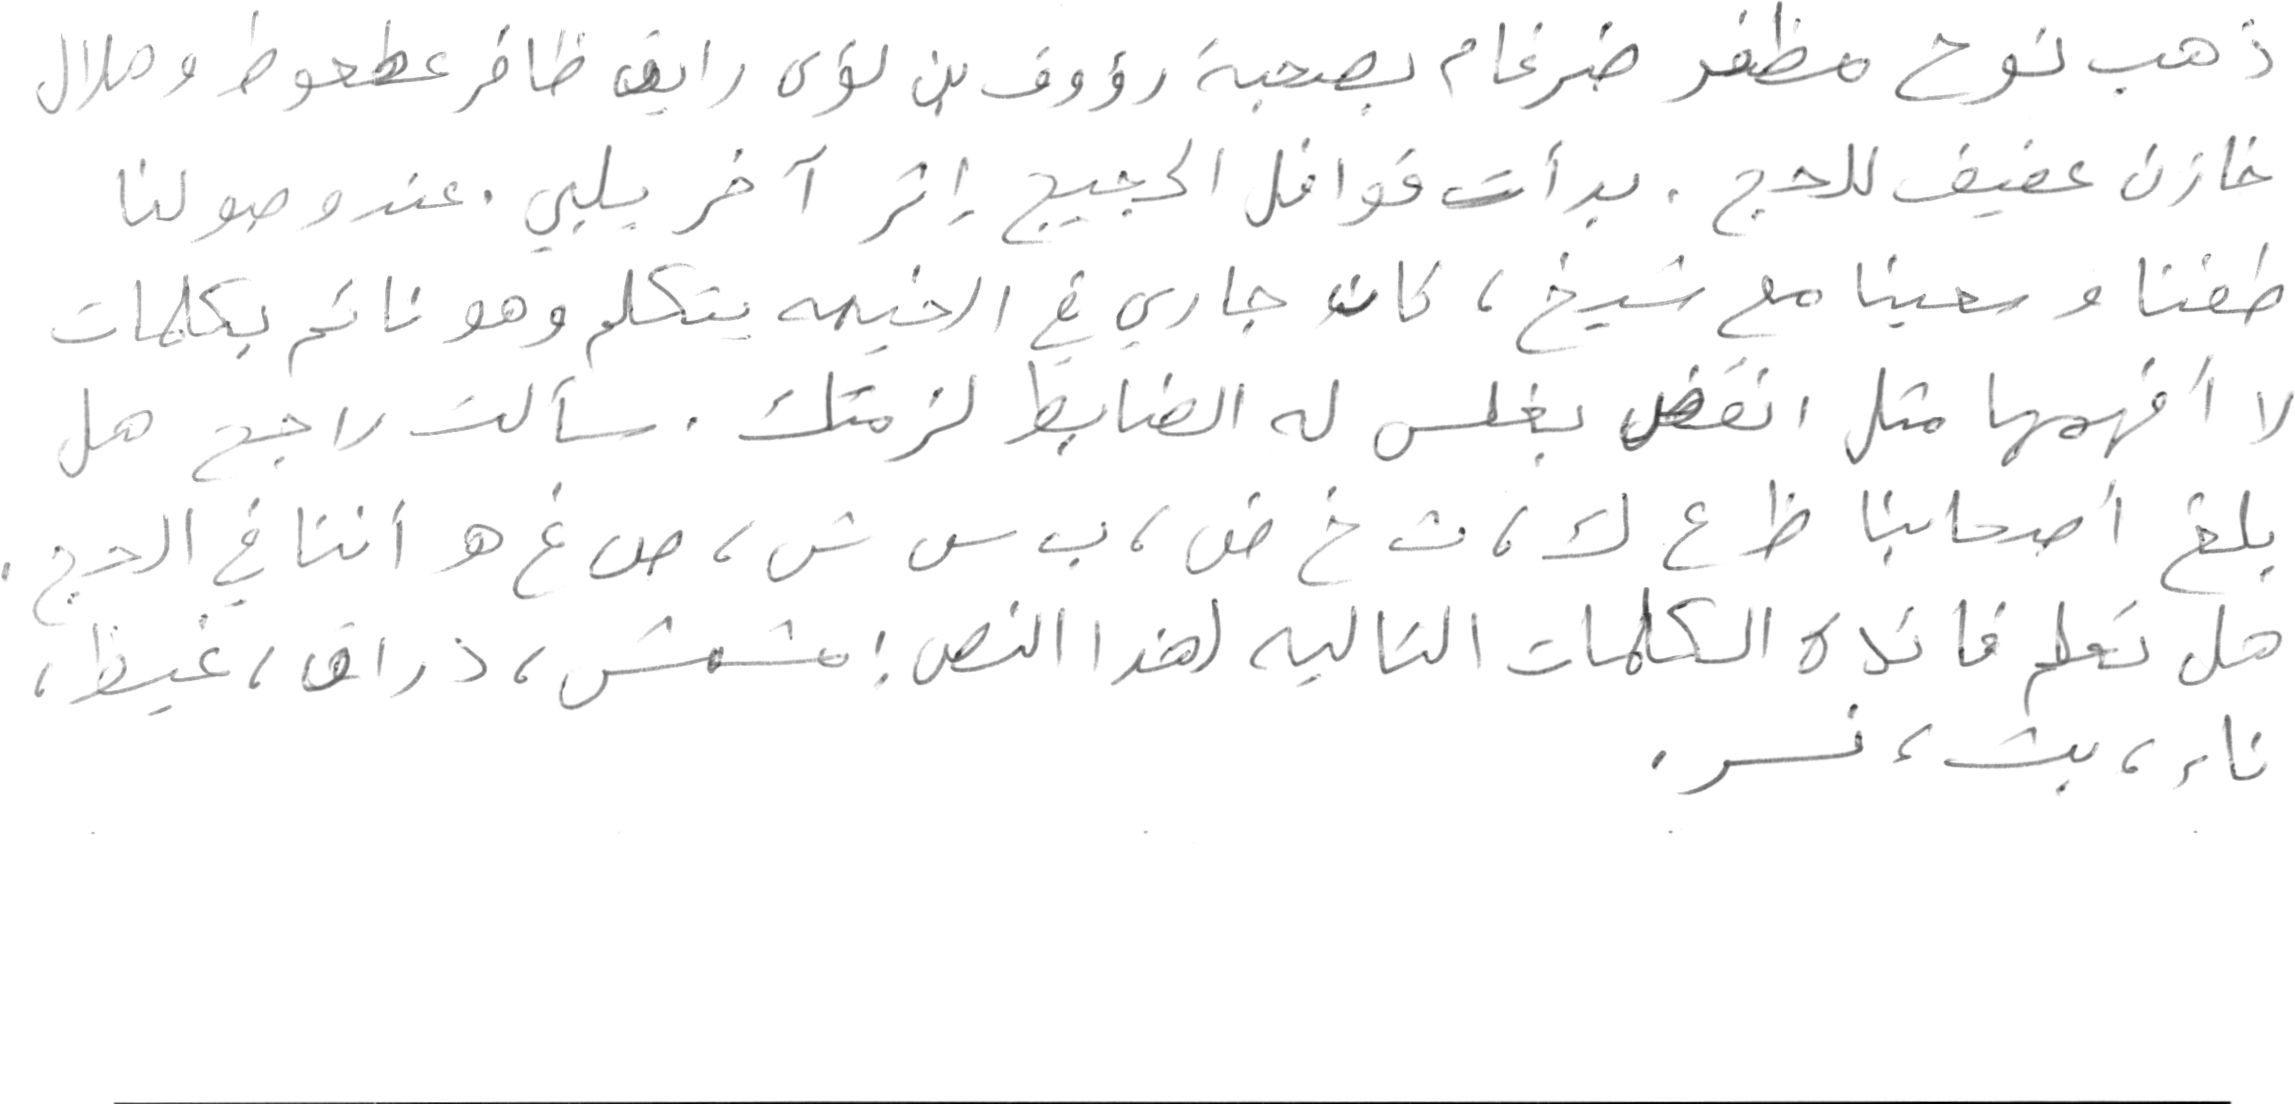 ذهب نوح مظفر ضرغام بصحبة رؤوف بن لؤى رايق ظافر عطعوط وهلال
خازن عفيف للحج . بدأت قوافل الحجيج إثر آخر يلبي . عند وصولنا
طفنا وسعينا مع شيخ ، كان جاري في الخيمه يتكلم وهو نائم بكلمات
لا أفهمها مثل انقض بغلس له الضابط لزمتك . سألت راجح هل
بلغ أصحابنا ظ ع ك ، ث خ ض ، ب س ش ، ص غ هـ أننا في الحج .
هل تعلم فائدة الكلمات التاليه لهذا النص : مشمش ، دراق ، غيظ ،
ناء ، بث ، نسر .